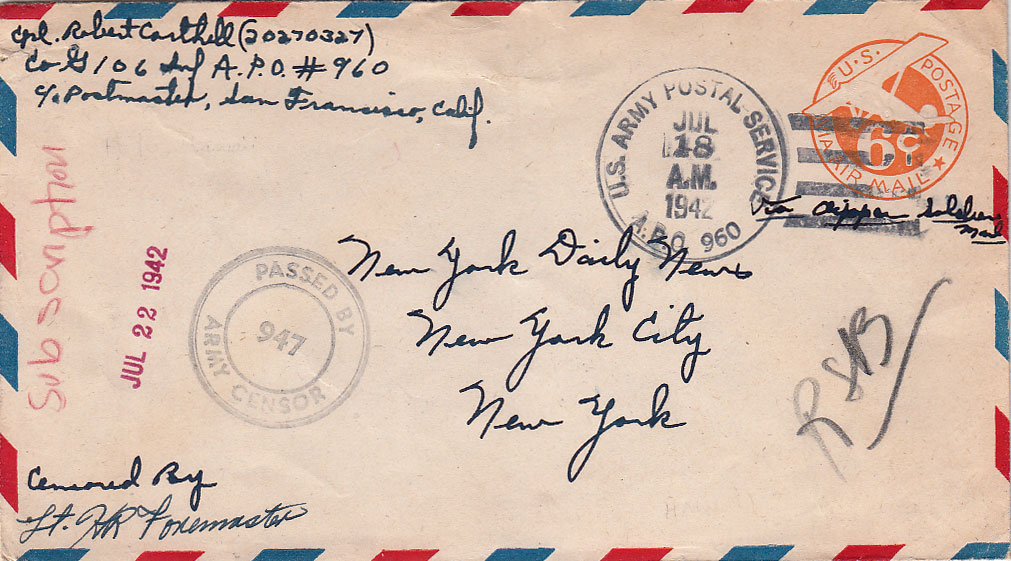 Cpl. Robert Corthell (20270327)
Co G 106 Inf A.P.O. # 960
c/o Postmaster, San Francisco, Calif.
U.S. ARMY POSTAL SERVICE
JUL
18
A.M.
1942
A.P.O. 960
U.S. POSTAGE
6¢
VIA AIR MAIL
Via Clipper
Mail
Subscription
JUL 22 1942
PASSED BY
947
ARMY CENSOR
New York Daily News
New York City
New York
RSB
Censored By
Lt. HR Fonemaster